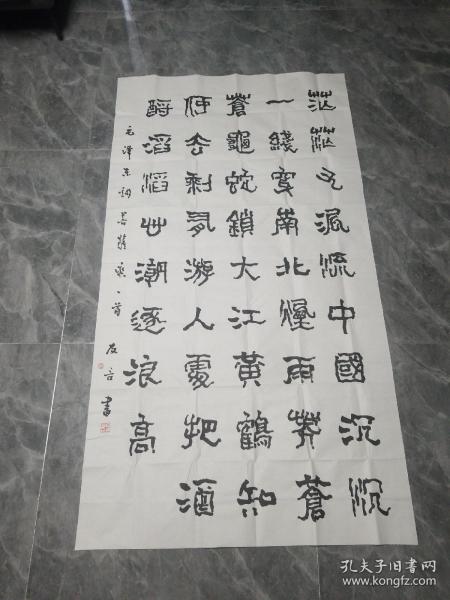 茫茫九派流中國沉沉
一綫穿南北煙雨莽蒼
蒼龜蛇鎖大江黃鶴知
何去剩有游人處把酒
酹滔滔心潮逐浪高
毛澤東詞菩薩蠻一首 書
孔夫子旧书网
www.kongfz.com